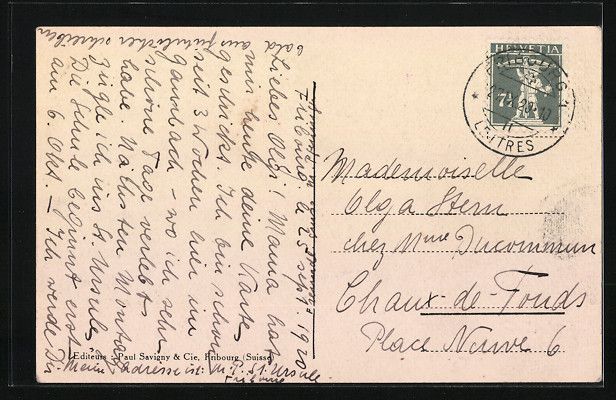 HELVETIA
7½
FRIBOURG 1
LETTRES
Fribourg le 25 sept. 1920
Liebes Olgi! Mama hat
mir heute deine Karte
geschickt. Ich bin schon
seit 3 Wochen hier im
wo ich sehr
schöne Tage verlebt
habe. Nächsten Montag
ich ins St Ursule
Die Schule beginnt erst
am 6. Okt. — Ich werde Dir
bald aus schreiben
Meine adresse ist: St. Ursule
Fribourg
Mademoiselle
Olga Stern
chez Mme Ducommun
Chaux-de-Fonds
Place Neuve 6
Editeurs : Paul Savigny & Cie, Fribourg (Suisse)